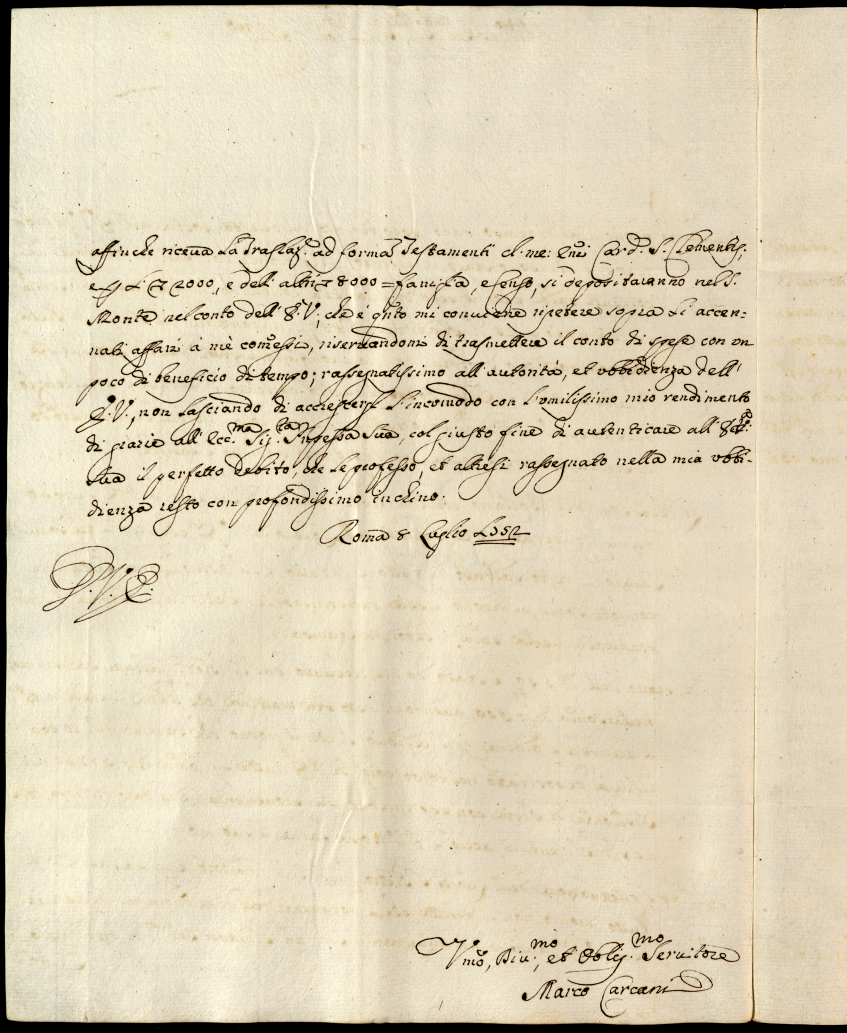 affinche riceva La Traslaz.e ad forma Testamenti cl: me: Emi Card. S. Clementis,
e li 2000, e deli altri 8000 = famiglia, e Censo, si depositaranno nel S.
Monte nel conto dell' E.V., che è q.to mi conviene ripetere sopra li accen=
nati affari à me com̃essi, riservandomi di trasmettere il conto di spese con un
poco di beneficio di tempo; rassegnatissimo all' autorità, et ubbidienza dell'
E.V., non lasciando di accrescerle l'incomodo con l'umilissimo mio rendimento
di grazie all' Ecc.ma Sig. Sua, col giusto fine di autenticare all'
Sua il perfetto debito, che le professo, et altresi rassegnato nella mia ubbi=
dienza resto con profondissimo inchino.
Roma 8 Luglio 1752
D. V. E.
Vmõ, Div.mo, et Oblig.mo Servitore
Marco Carcani